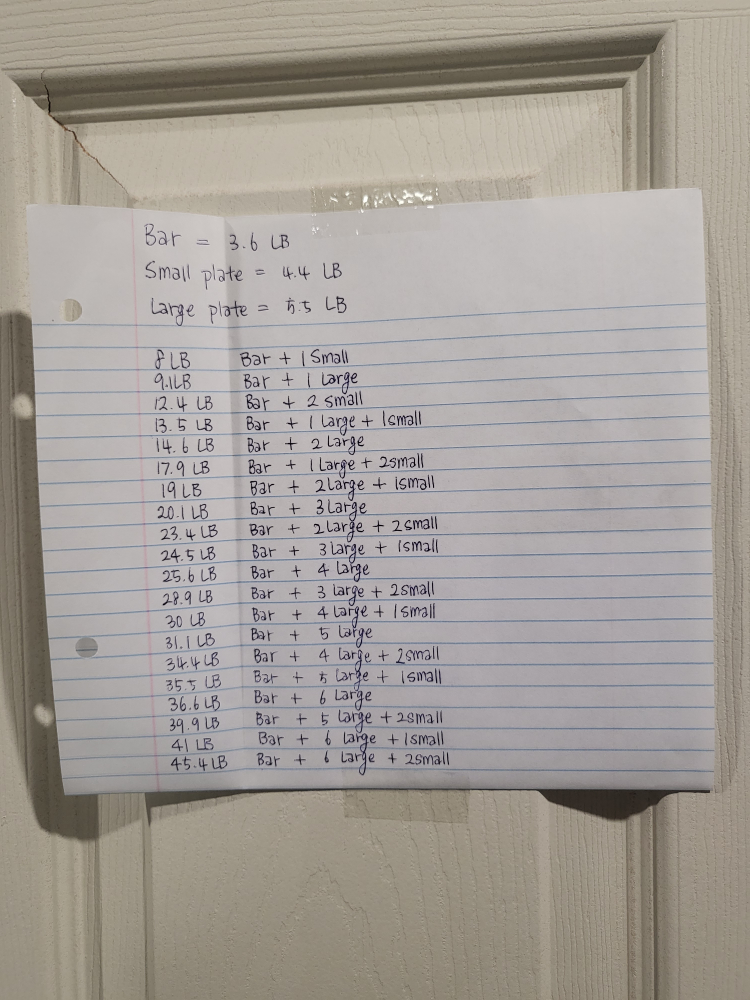 Bar = 3.6 LB
Small plate = 4.4 LB
Large plate = 5.5 LB
8 LB Bar + 1 Small
9.1LB Bar + 1 Large
12.4 LB Bar + 2 small
13.5 LB Bar + 1 Large + 1small
14.6 LB Bar + 2 Large
17.9 LB Bar + 1 Large + 2small
19 LB Bar + 2Large + 1small
20.1 LB Bar + 3Large
23.4 LB Bar + 2Large + 2small
24.5 LB Bar + 3large + 1small
25.6 LB Bar + 4 Large
28.9 LB Bar + 3 large + 2small
30 LB Bar + 4 large + 1small
31.1 LB Bar + 5 large
34.4 LB Bar + 4 large + 2small
35.5 LB Bar + 5 large + 1small
36.6 LB Bar + 6 large
39.9 LB Bar + 5 large + 2small
41 LB Bar + 6 large + 1small
45.4 LB Bar + 6 large + 2small